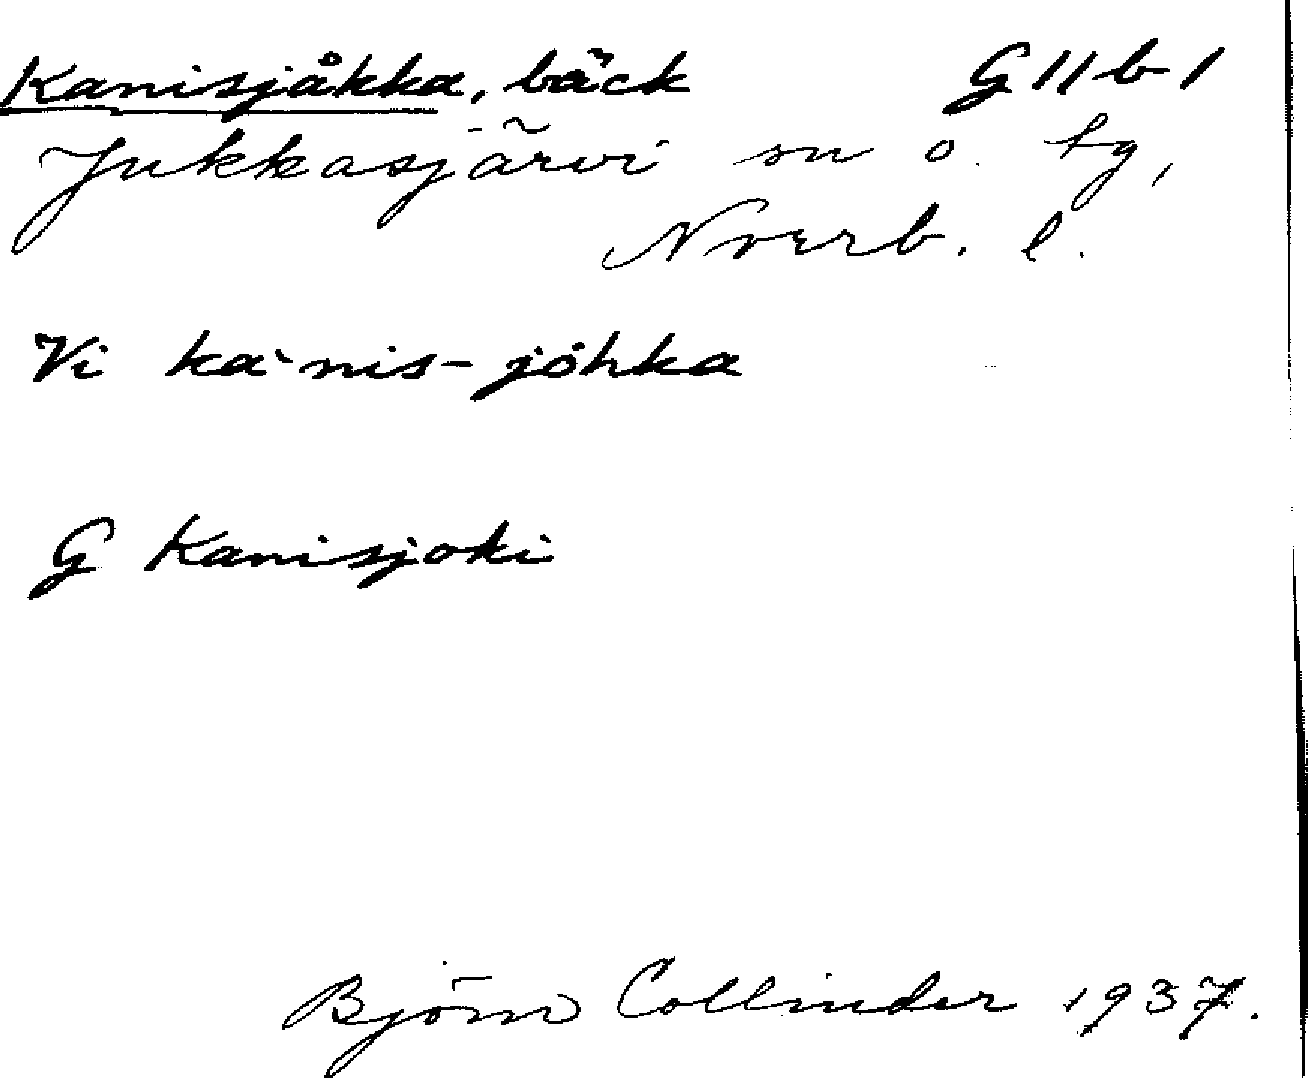 Kanisjåkka, bäck G 11 b 1
Jukkasjärvi sn o. tg,
Nverb. l.
Vi ka`nis-jȯhka
G Kanisjoki
Björn Collinder 1937.